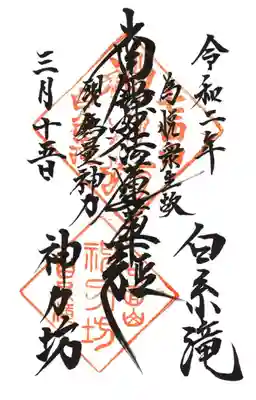 令和二年
白糸滝
為悦衆生故
南無妙法蓮華経
現無量神力
三月十五日
神力坊